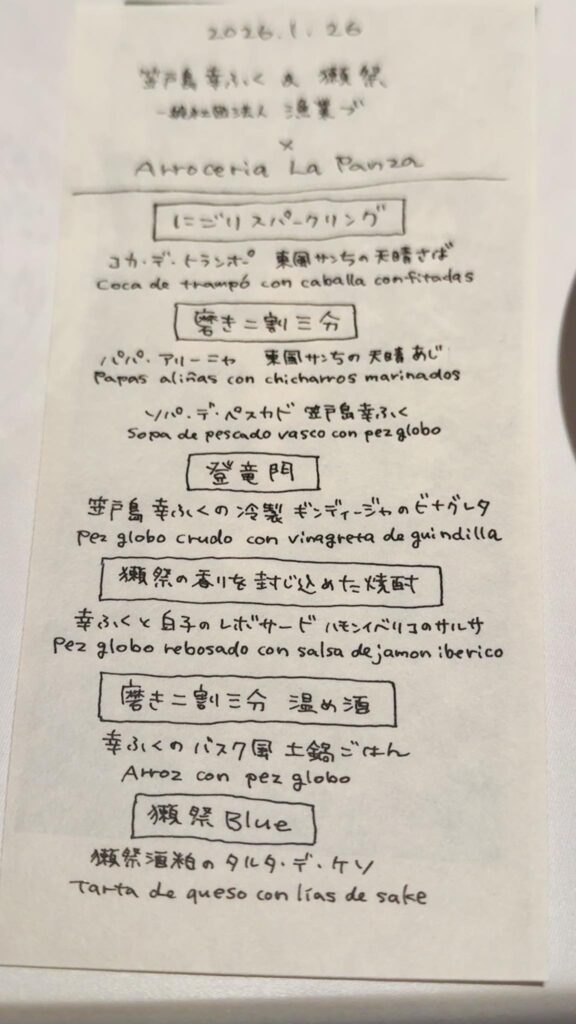 2026.1.26
笠戸島幸ふく & 獺祭
一般社団法人 漁業ブ
×
Arroceria La Panza
にごりスパークリング
コカ・デ・トランポー 東風サンちの天晴さば
Coca de trampó con caballa confitadas
磨き二割三分
パパ・アリーニャ 東風サンちの天晴あじ
Papas aliñas con chicharros marinados
ソパ・デ・ペスカド 笠戸島幸ふく
Sopa de pescado vasco con pez globo
登竜門
笠戸島 幸ふくの 冷製 ギンディージャのビナグレタ
Pez globo crudo con vinagreta de guindilla
獺祭の香りを封じ込めた焼酎
幸ふくと白子のレボサード ハモンイベリコのサルサ
Pez globo rebosado con salsa de jamon iberico
磨き二割三分 温め酒
幸ふくの バスク風 土鍋ごはん
Arroz con pez globo
獺祭 Blue
獺祭酒粕のタルタ・デ・ケソ
Tarta de queso con lías de sake